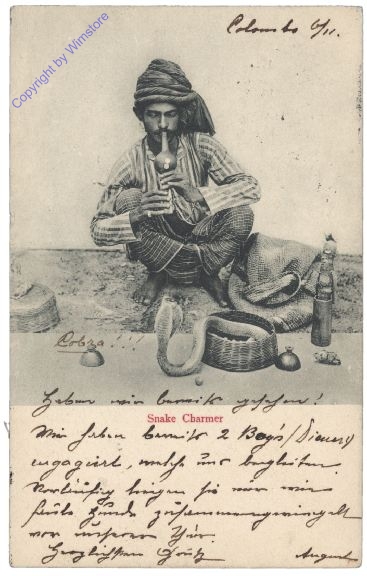 Colombo 6/11.
Copyright by Wimstore
Cobra!!!
Haben wir bereits gesehen!
Snake Charmer
Wir haben bereits 2 Boy's (Diener)
engagiert, welche uns begleiten.
Vorläufig liegen sie nur wie
faule Hunde zusammengeringelt
vor unserer Tür.
Herzlichsten Gruß August